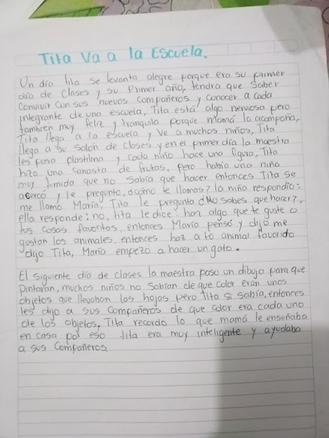 Tita Va a la Escuela.
Un día tita se levanto alegre porque era su primer
día de clases y su Primer año, tendra que Saber
Convivir Con sus nuevos Compañeros y Conocer a Cada
integrante de una escuela, Tita está algo nerviosa pero
tambien muy feliz y tranquila porque mamá la acompaña,
Tita llega a la escuela y Ve a muchos niños, Tita
llega a su Salon de clases y en el primer día la maestra
les paso plastilina y cada niño hace una figura, Tita
hizo una canasta de frutas, pero había una niña
muy timida que no sabía que hacer entonces Tita se
acercó y le pregunto, ¿como te llamas? la niña respondio:
me llamo María, Tita le pregunto ¿No sabes que hacer?,
ella responde: no, tita le dice haz algo que te guste o
tus cosas favoritas, entonces María pensó y dijo me
gustan los animales, entonces haz a tu animal favorito
dijo Tita, María empezo a hacer un gato.
El siguiente día de clases la maestra paso un dibujo para que
Pintaran, muchos niños no Sabían de que color eran unos
objetos que llevaban las hojas pero Tita si sabía, entonces
les dijo a sus Compañeros de que color era cada uno
de los objetos, Tita recordo lo que mamá le enseñaba
en casa por eso tita era muy inteligente y ayudaba
a sus Compañeros.